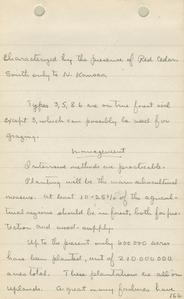 Characterized by the presence of Red Cedar
South only to N. Kansas.
Types 3, 5, 8 & 6 are on true forest soil
except 3, which can possibly be used for
grazing.
Management
Intensive methods are practicable.
Planting will be the main silvicultural
measure. At least 10-25% of the agricul-
tural regions should be in forest, both for pro-
tection and wood-supply.
Up to the present only 600 000 acres
have been planted, out of 210 000 000
acres total. These plantations are all on
uplands. A great many failures have
166